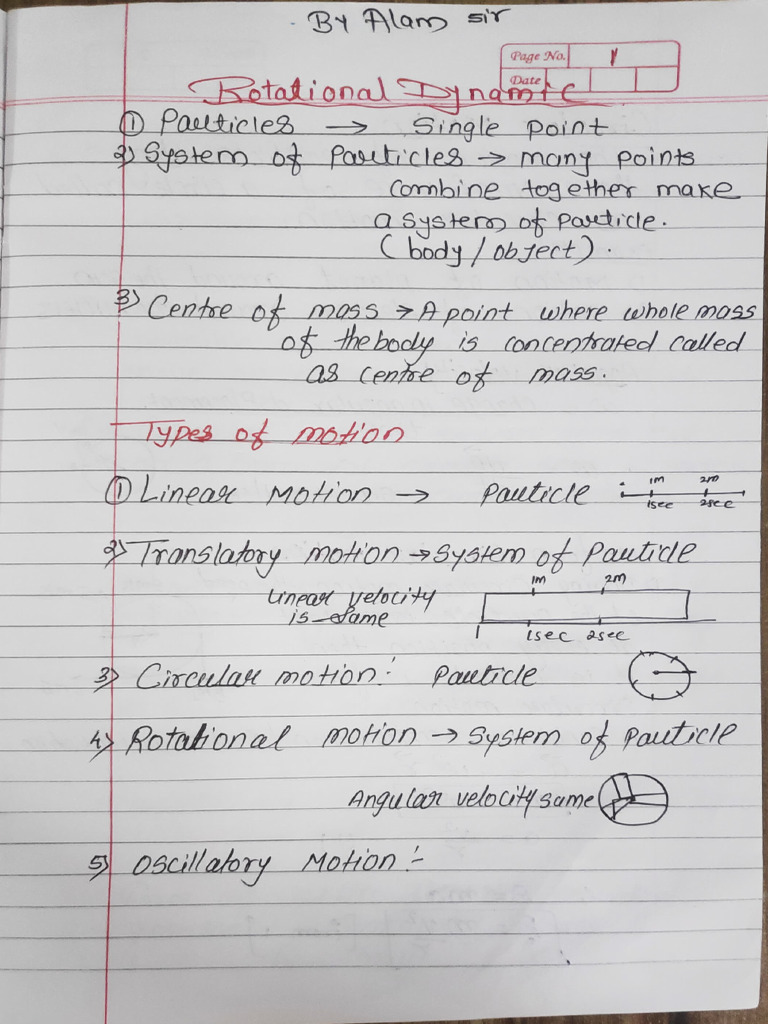 By Alam sir
Page No. 1
Date
Rotational Dynamic
① Particles → Single point
2) System of Particles → many points
combine together make
a system of particle.
(body / object).
3) Centre of mass → A point where whole mass
of the body is concentrated called
as centre of mass.
Types of motion
① Linear Motion → Particle
1m 2m
1sec 2sec
2) Translatory motion → System of Particle
Linear velocity
is same
1m 2m
1sec 2sec
3) Circular motion :- Particle
4) Rotational motion → System of particle
Angular velocity same
5) Oscillatory Motion :-